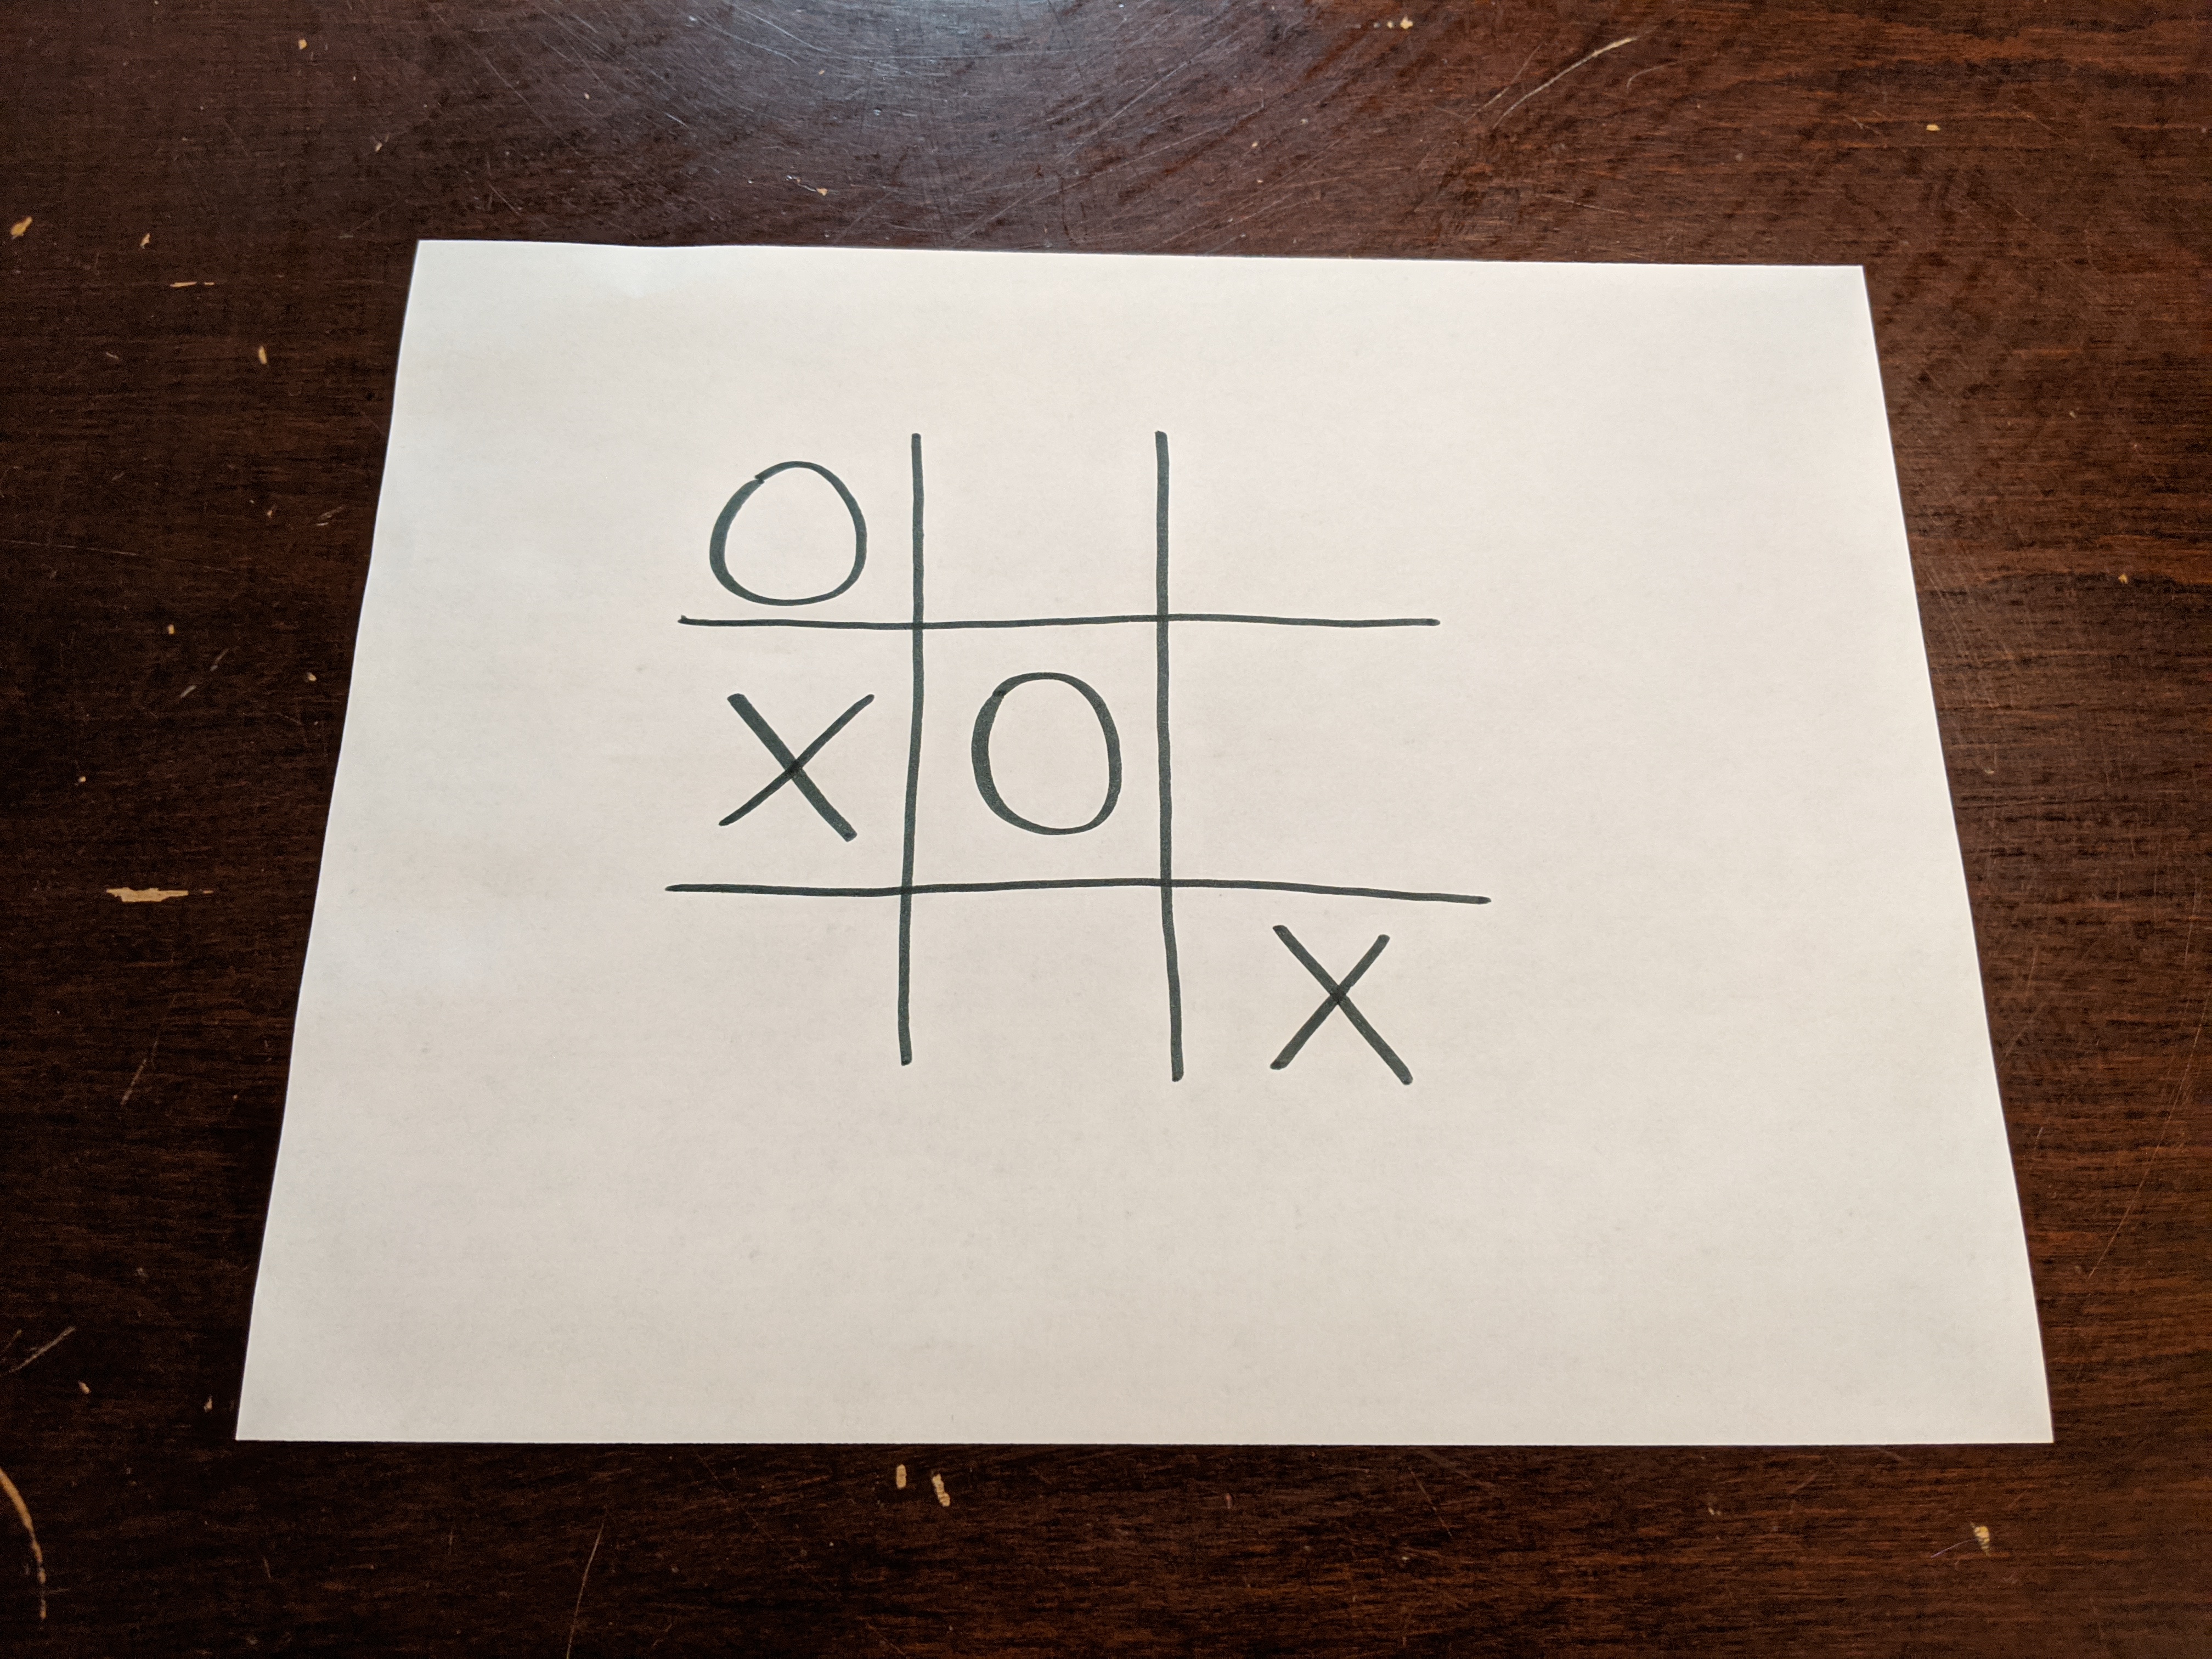 O
X O
X